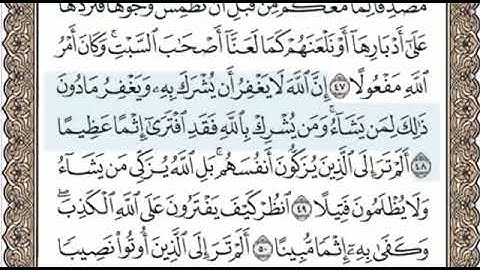 مُصَدِّقًا لِّمَا مَعَكُم مِّن قَبْلِ أَن نَّطْمِسَ وُجُوهًا فَنَرُدَّهَا
عَلَىٰٓ أَدْبَارِهَآ أَوْ نَلْعَنَهُمْ كَمَا لَعَنَّآ أَصْحَٰبَ ٱلسَّبْتِ ۚ وَكَانَ أَمْرُ
ٱللَّهِ مَفْعُولًا ٤٧ إِنَّ ٱللَّهَ لَا يَغْفِرُ أَن يُشْرَكَ بِهِۦ وَيَغْفِرُ مَا دُونَ
ذَٰلِكَ لِمَن يَشَآءُ ۚ وَمَن يُشْرِكْ بِٱللَّهِ فَقَدِ ٱفْتَرَىٰٓ إِثْمًا عَظِيمًا
٤٨ أَلَمْ تَرَ إِلَى ٱلَّذِينَ يُزَكُّونَ أَنفُسَهُم ۚ بَلِ ٱللَّهُ يُزَكِّى مَن يَشَآءُ
وَلَا يُظْلَمُونَ فَتِيلًا ٤٩ ٱنظُرْ كَيْفَ يَفْتَرُونَ عَلَى ٱللَّهِ ٱلْكَذِبَ ۖ
وَكَفَىٰ بِهِۦٓ إِثْمًا مُّبِينًا ٥٠ أَلَمْ تَرَ إِلَى ٱلَّذِينَ أُوتُوا۟ نَصِيبًا